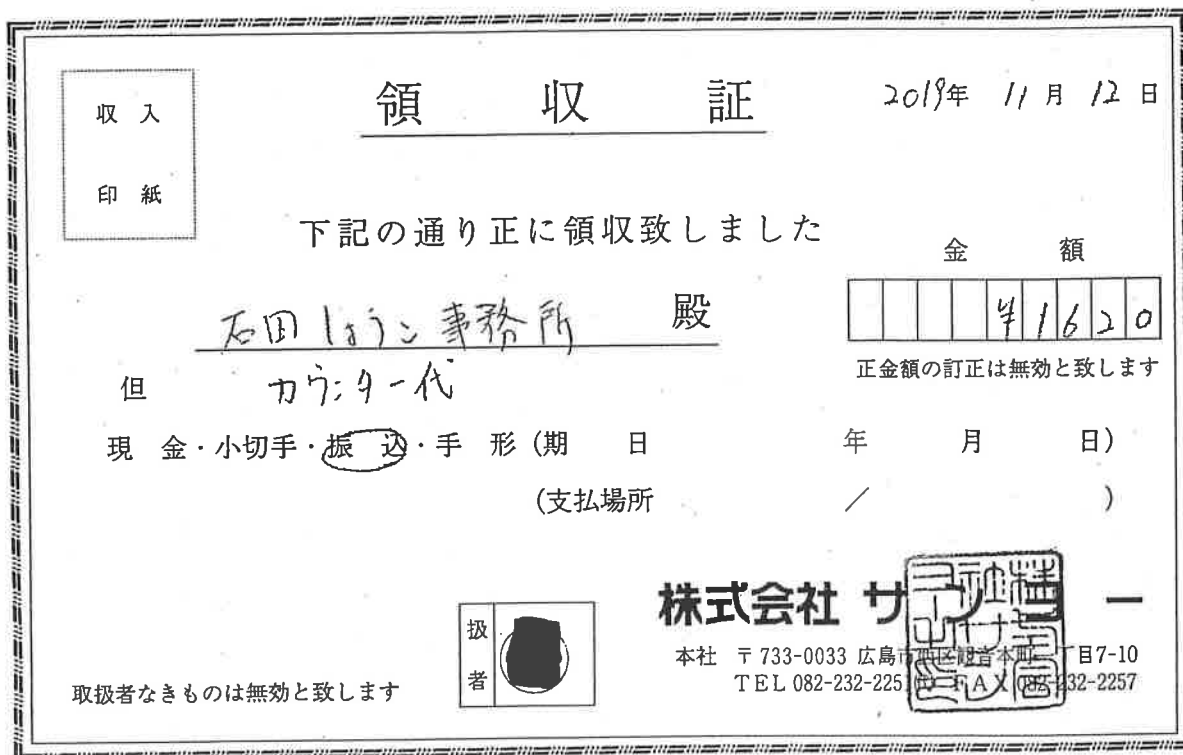 収入
印紙
領収証
2019年 11月 12日
下記の通り正に領収致しました
金額
石田しょうこ事務所 殿
¥1620
正金額の訂正は無効と致します
但 カウンター代
現金・小切手・振込・手形(期日 年 月 日)
(支払場所 / )
株式会社 サンヨー
扱者
本社 〒733-0033 広島市西区観音本町 丁目7-10
TEL 082-232-225 FAX 082-232-2257
取扱者なきものは無効と致します